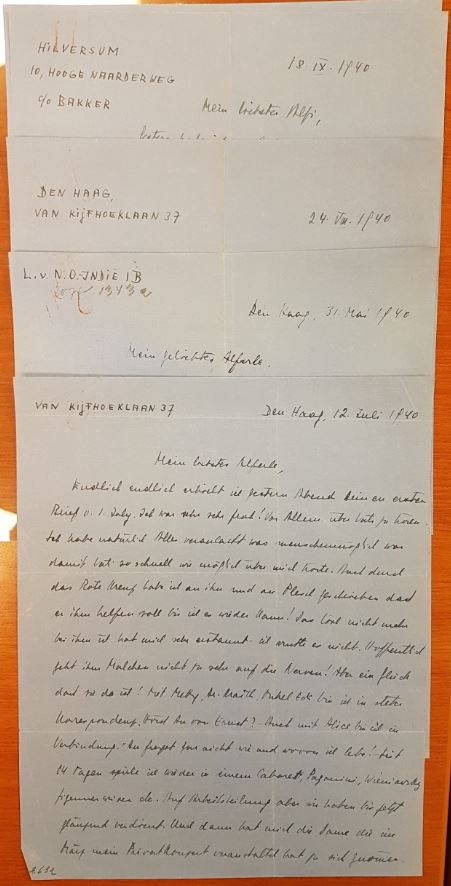 HILVERSUM
10, HOOGE NAARDERWEG
c/o BAKKER
18 IX. 1940
Mein liebster Alfi,
DEN HAAG,
VAN KIJFHOEKLAAN 37
24. VII. 1940
L. v. N.O-INDIE 1B
Den Haag, 31. Mai 1940
Mein geliebtes Alferle.
VAN KIJFHOEKLAAN 37
Den Haag, 12. Juli 1940
Mein liebstes Alferle,
Endlich endlich erhielt ich gestern Abend deinen ersten
Brief v. 1. July. Ich war sehr sehr froh! Vor Allem über zu hören.
Ich habe natürlich Alles veranlasst was menschenmöglich war
damit so schnell wie möglich über mich hörte. Auch durch
das Rote Kreuz habe ich an ihn und an geschrieben dass
er ihm helfen soll bis ich es wieder kann! Dass nicht mehr
bei ihm ist hat mich sehr erstaunt - ich wusste es nicht. Hoffentlich
geht ihm Malchen nicht zu sehr auf die Nerven! Aber ein Glück
dass sie da ist! Mit Onkel bin ich in steter
Korrespondenz. Hörst du von Ernst? - Auch mit Alice bin ich in
Verbindung. - Du fragst gar nicht wie und wovon ich lebe! - Seit
14 Tagen spiele ich wieder in einem Cabarett, Paganini, Wieniawsky
Zigeunerweisen etc. Auf Arbeitsteilung aber wir haben bis jetzt
glänzend verdient. Und dann hat mich die Dame die im
März mein Privatkonzert veranstaltet hat zu sich genommen.